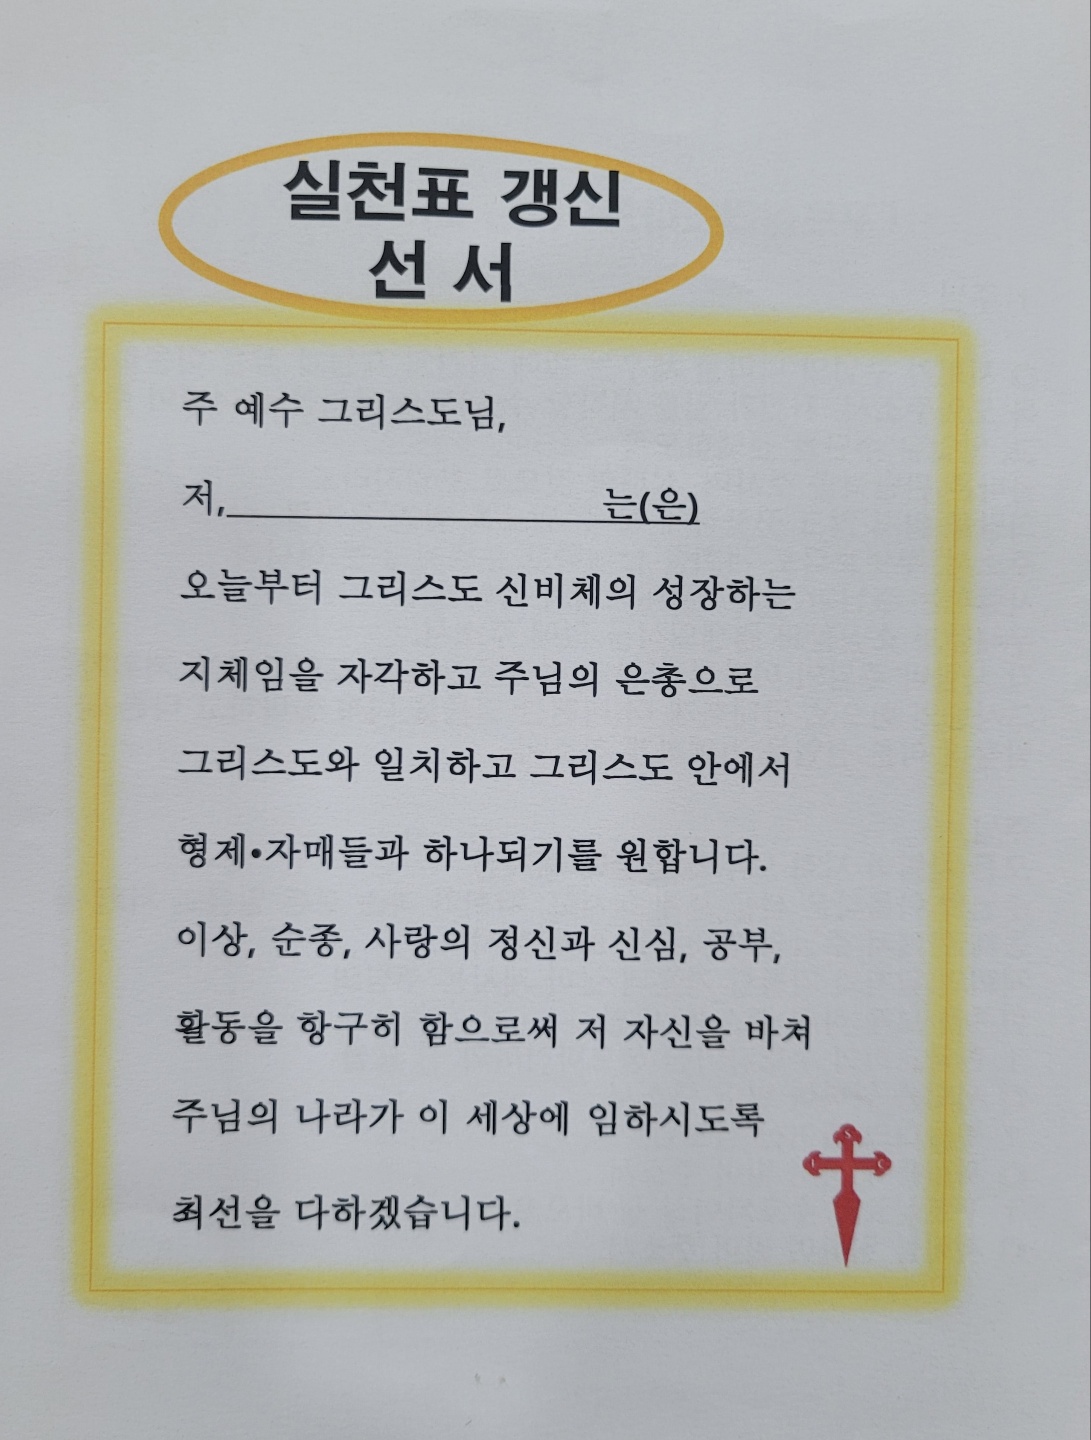 실천표 갱신
선 서
주 예수 그리스도님,
저,                    는(은)
오늘부터 그리스도 신비체의 성장하는
지체임을 자각하고 주님의 은총으로
그리스도와 일치하고 그리스도 안에서
형제•자매들과 하나되기를 원합니다.
이상, 순종, 사랑의 정신과 신심, 공부,
활동을 항구히 함으로써 저 자신을 바쳐
주님의 나라가 이 세상에 임하시도록
최선을 다하겠습니다.